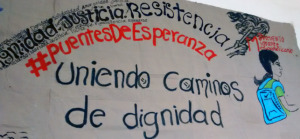 Dignidad Justicia Resistencia
#PuentesDeEsperanza
Uniendo Caminos
de dignidad